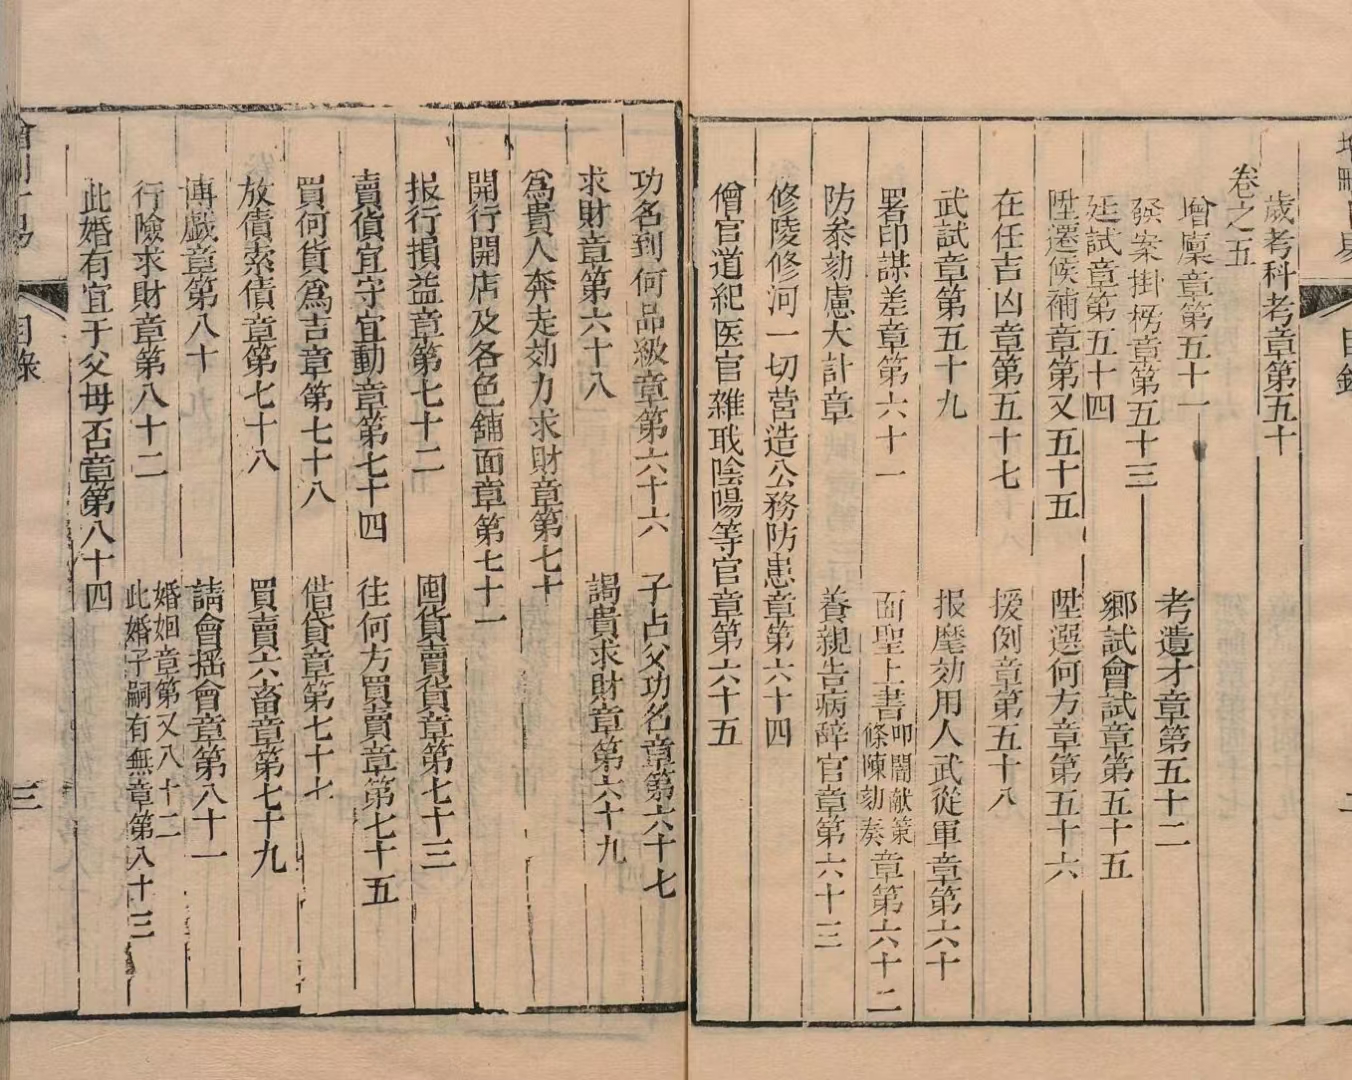 歲考科考章第五十
卷之五
增廩章第五十一
考遺才章第五十二
發案掛榜章第五十三
鄉試會試章第五十五
廷試章第五十四
陞遷候補章第又五十五
陞選何方章第五十六
在任吉凶章第五十七
援例章第五十八
武試章第五十九
报麾効用人武從軍章第六十
署印謀差章第六十一
面聖上書叩閽献策條陳劾奏章第六十二
防叅劾慮大計章
養親告病辞官章第六十三
修陵修河一切营造公務防患章第六十四
僧官道紀医官雜职陰陽等官章第六十五
功名到何品級章第六十六
子占父功名章第六十七
求財章第六十八
謁貴求財章第六十九
為貴人奔走効力求財章第七十
開行開店及各色舖面章第七十一
报行損益章第七十二
囤貨賣貨章第七十三
賣貨宜守宜動章第七十四
往何方買賣章第七十五
買何貨為吉章第七十八
借貸章第七十七
放債索債章第七十八
買賣六畜章第七十九
博戲章第八十
請會搖會章第八十一
行險求財章第八十二
婚姻章第又八十二
此婚子嗣有無章第八十三
此婚有宜于父母否章第八十四
目錄
三